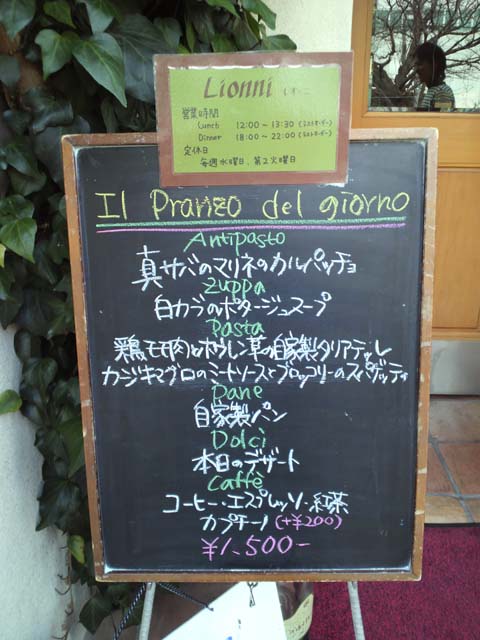 Lionni
営業時間
Lunch 12:00 ~ 13:30 (ラストオーダー)
Dinner 18:00 ~ 22:00 (ラストオーダー)
定休日
毎週水曜日、第2火曜日
Il Pranzo del giorno
Antipasto
真サバのマリネのカルパッチョ
Zuppa
白カブのポタージュスープ
Pasta
鶏モモ肉とホウレン草の自家製タリアテッレ
カジキマグロのミートソースとブロッコリーのスパゲッティ
Pane
自家製パン
Dolci
本日のデザート
Caffè
コーヒー・エスプレッソ・紅茶
カプチーノ(+¥200)
¥1,500-